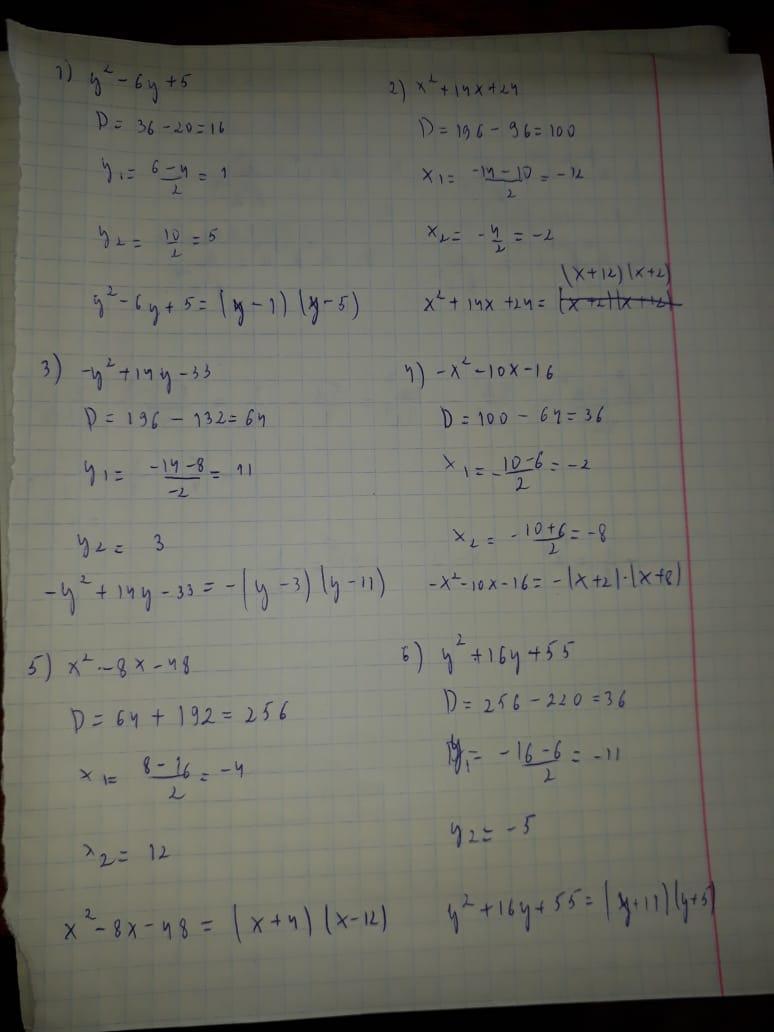 1) y² - 6y + 5
D = 36 - 20 = 16
y₁ = (6 - 4)/2 = 1
y₂ = 10/2 = 5
y² - 6y + 5 = (y - 1) (y - 5)
2) x² + 14x + 24
D = 196 - 96 = 100
x₁ = (-14 - 10)/2 = -12
x₂ = -4/2 = -2
(x + 12) (x + 2)
x² + 14x + 24 = (x + 2)(x + 12)
3) -y² + 14y - 33
D = 196 - 132 = 64
y₁ = (-14 - 8)/-2 = 11
y₂ = 3
-y² + 14y - 33 = -(y - 3) (y - 11)
4) -x² - 10x - 16
D = 100 - 64 = 36
x₁ = -(10 - 6)/2 = -2
x₂ = -(10 + 6)/2 = -8
-x² - 10x - 16 = -(x + 2)·(x + 8)
5) x² - 8x - 48
D = 64 + 192 = 256
x₁ = (8 - 16)/2 = -4
x₂ = 12
x² - 8x - 48 = (x + 4) (x - 12)
6) y² + 16y + 55
D = 256 - 220 = 36
y₁ = (-16 - 6)/2 = -11
y₂ = -5
y² + 16y + 55 = (y + 11) (y + 5)